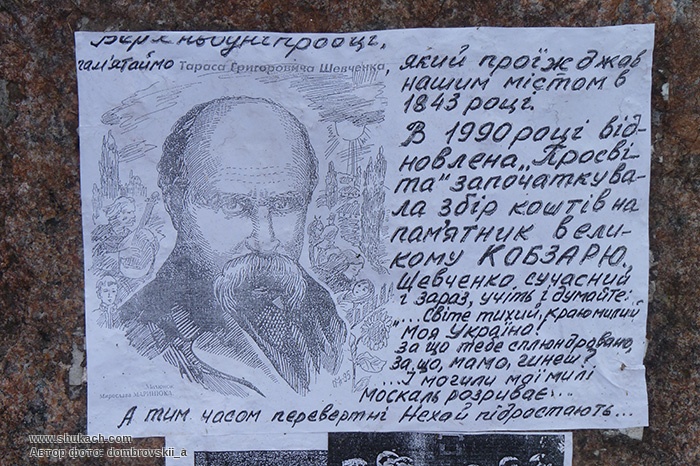 Верхньодніпровці,
пам'ятаймо Тараса Григоровича Шевченка,
який проїжджав
нашим містом в
1843 році.
В 1990 році від-
новлена „Просві-
та" започаткува-
ла збір коштів на
пам'ятник вели-
кому КОБЗАРЮ.
Шевченко сучасний
і зараз, учіть і думайте:
„...Світе тихий, краю милий
Моя Україна!
За що тебе сплюндровано,
За що, мамо, гинеш?
...І могили мої милі
Москаль розриває...
А тим часом перевертні Нехай підрастають...
Малюнок
Мирослава МАРИНЮКА
www.shukach.com
Автор фото: dombrovskii_a